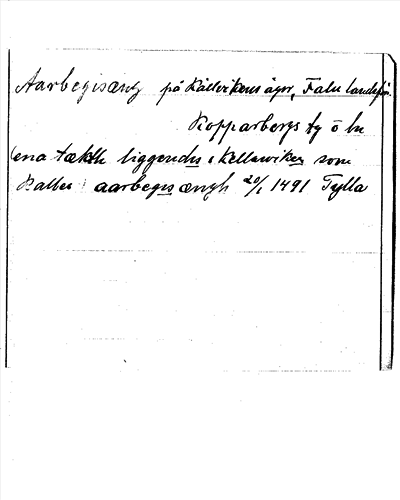 Aarbegisæng på Källvikens ägor, Falu landsför.
Kopparbergs hg ö ln
(ena tækth liggendis i Kellewiken som
Kalles aarbegis ængh 20/1 1491 Tylla